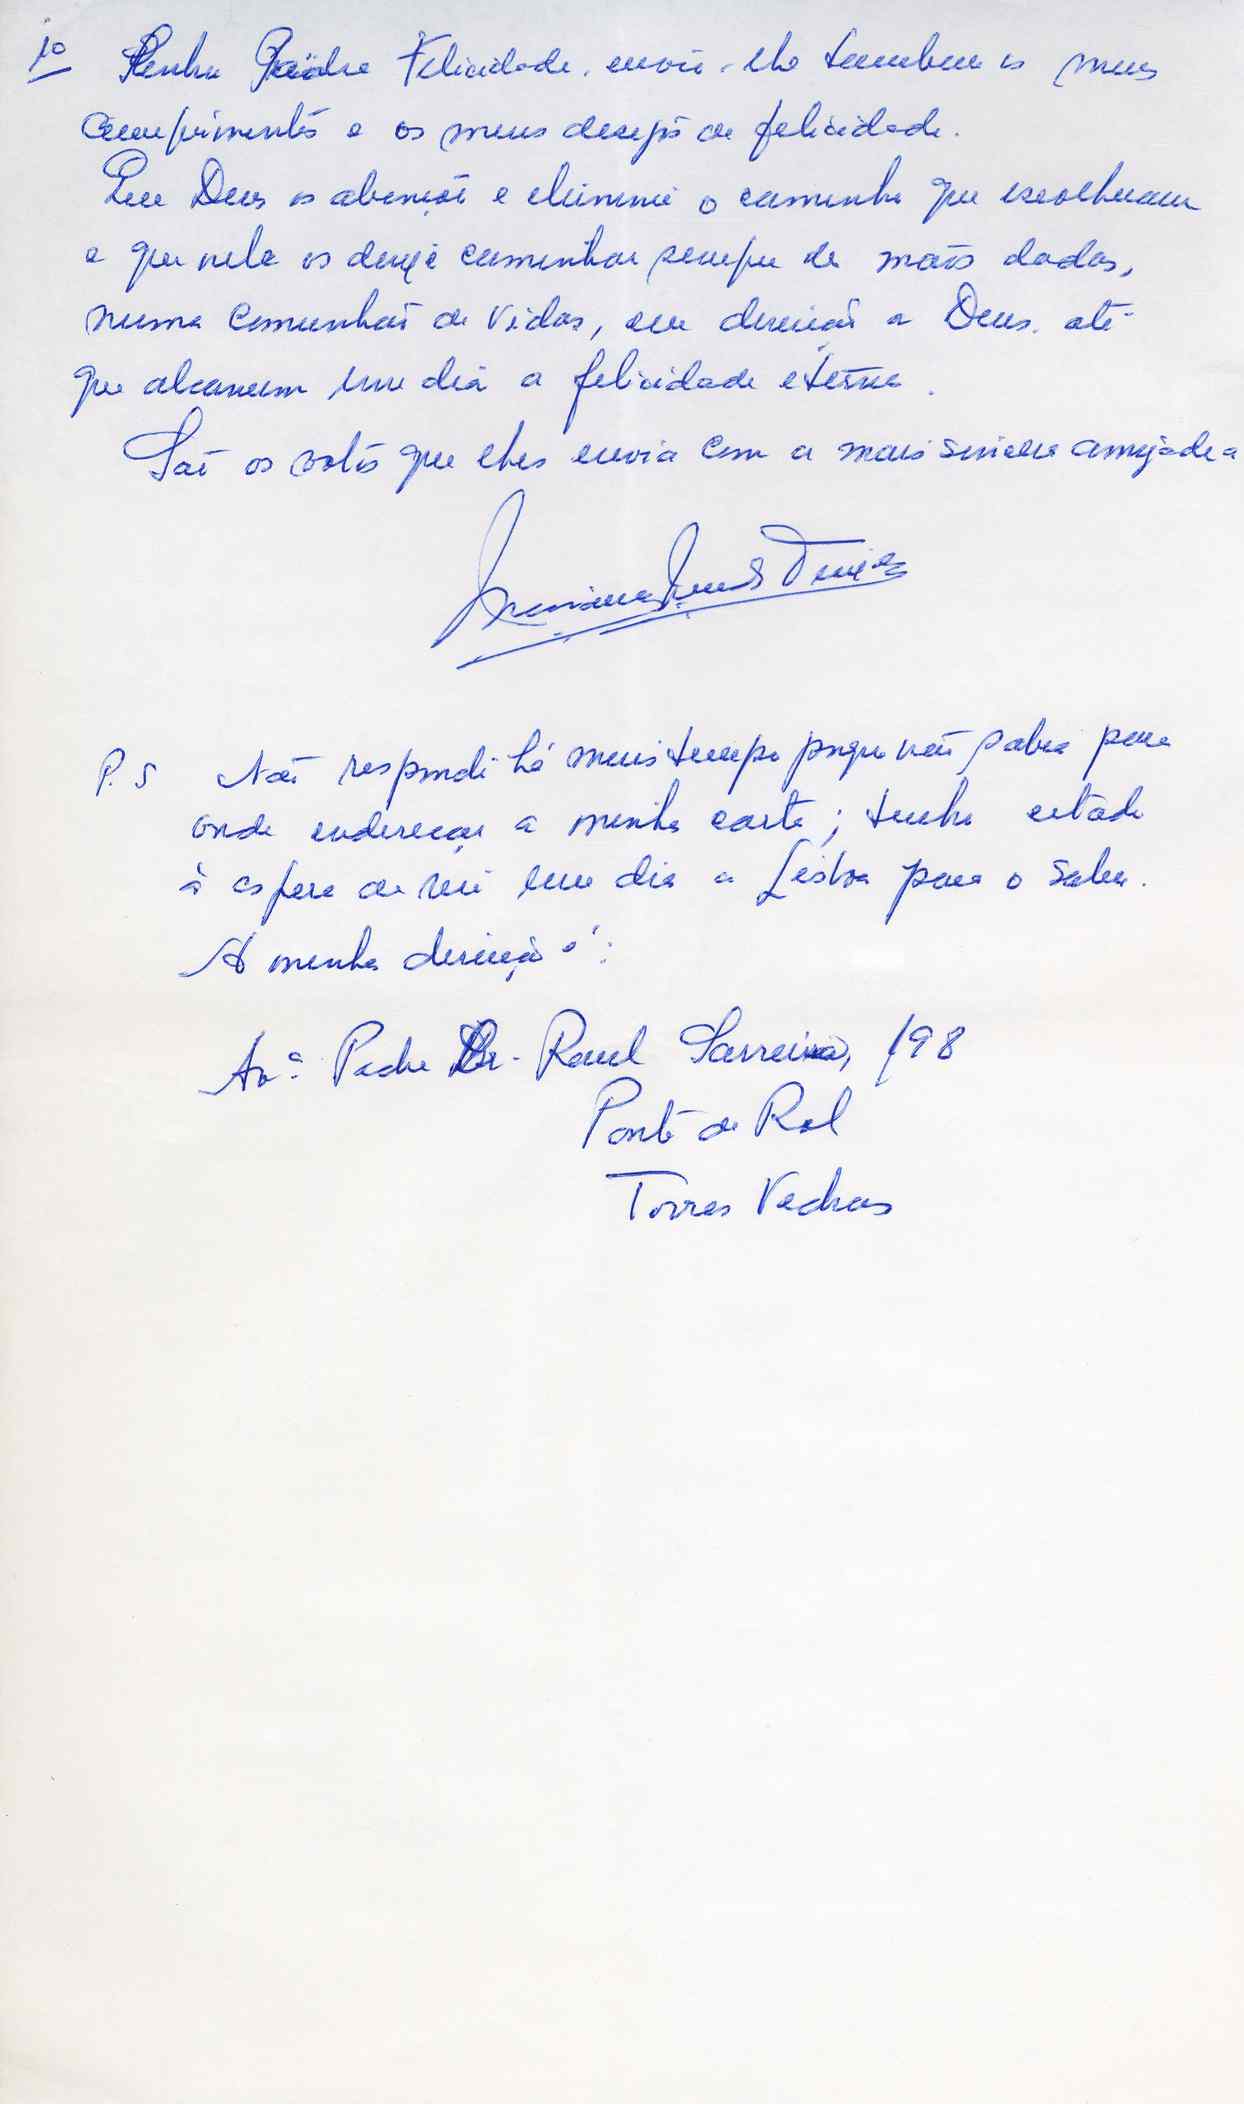 1º Padre Felicidade, envio-lhe tambem os meus
cumprimentos e os meus desejos de felicidade.
Que Deus os abençoe e ilumine o caminho que escolheram
e que nele os deseje caminhar sempre de mãos dadas,
numa comunhão de vidas, em direcção a Deus, até
que alcancem um dia a felicidade eterna.
São os votos que lhes envia com a mais sincera amizade a
P.S Não respondi há mais tempo porque não sabia para
onde endereçar a minha carta; tenho estado
à espera de ir um dia a Lisboa para o saber.
A minha direcção é:
Avª Padre Dr. Raul Sarreira, 198
Ponte do Rol
Torres Vedras